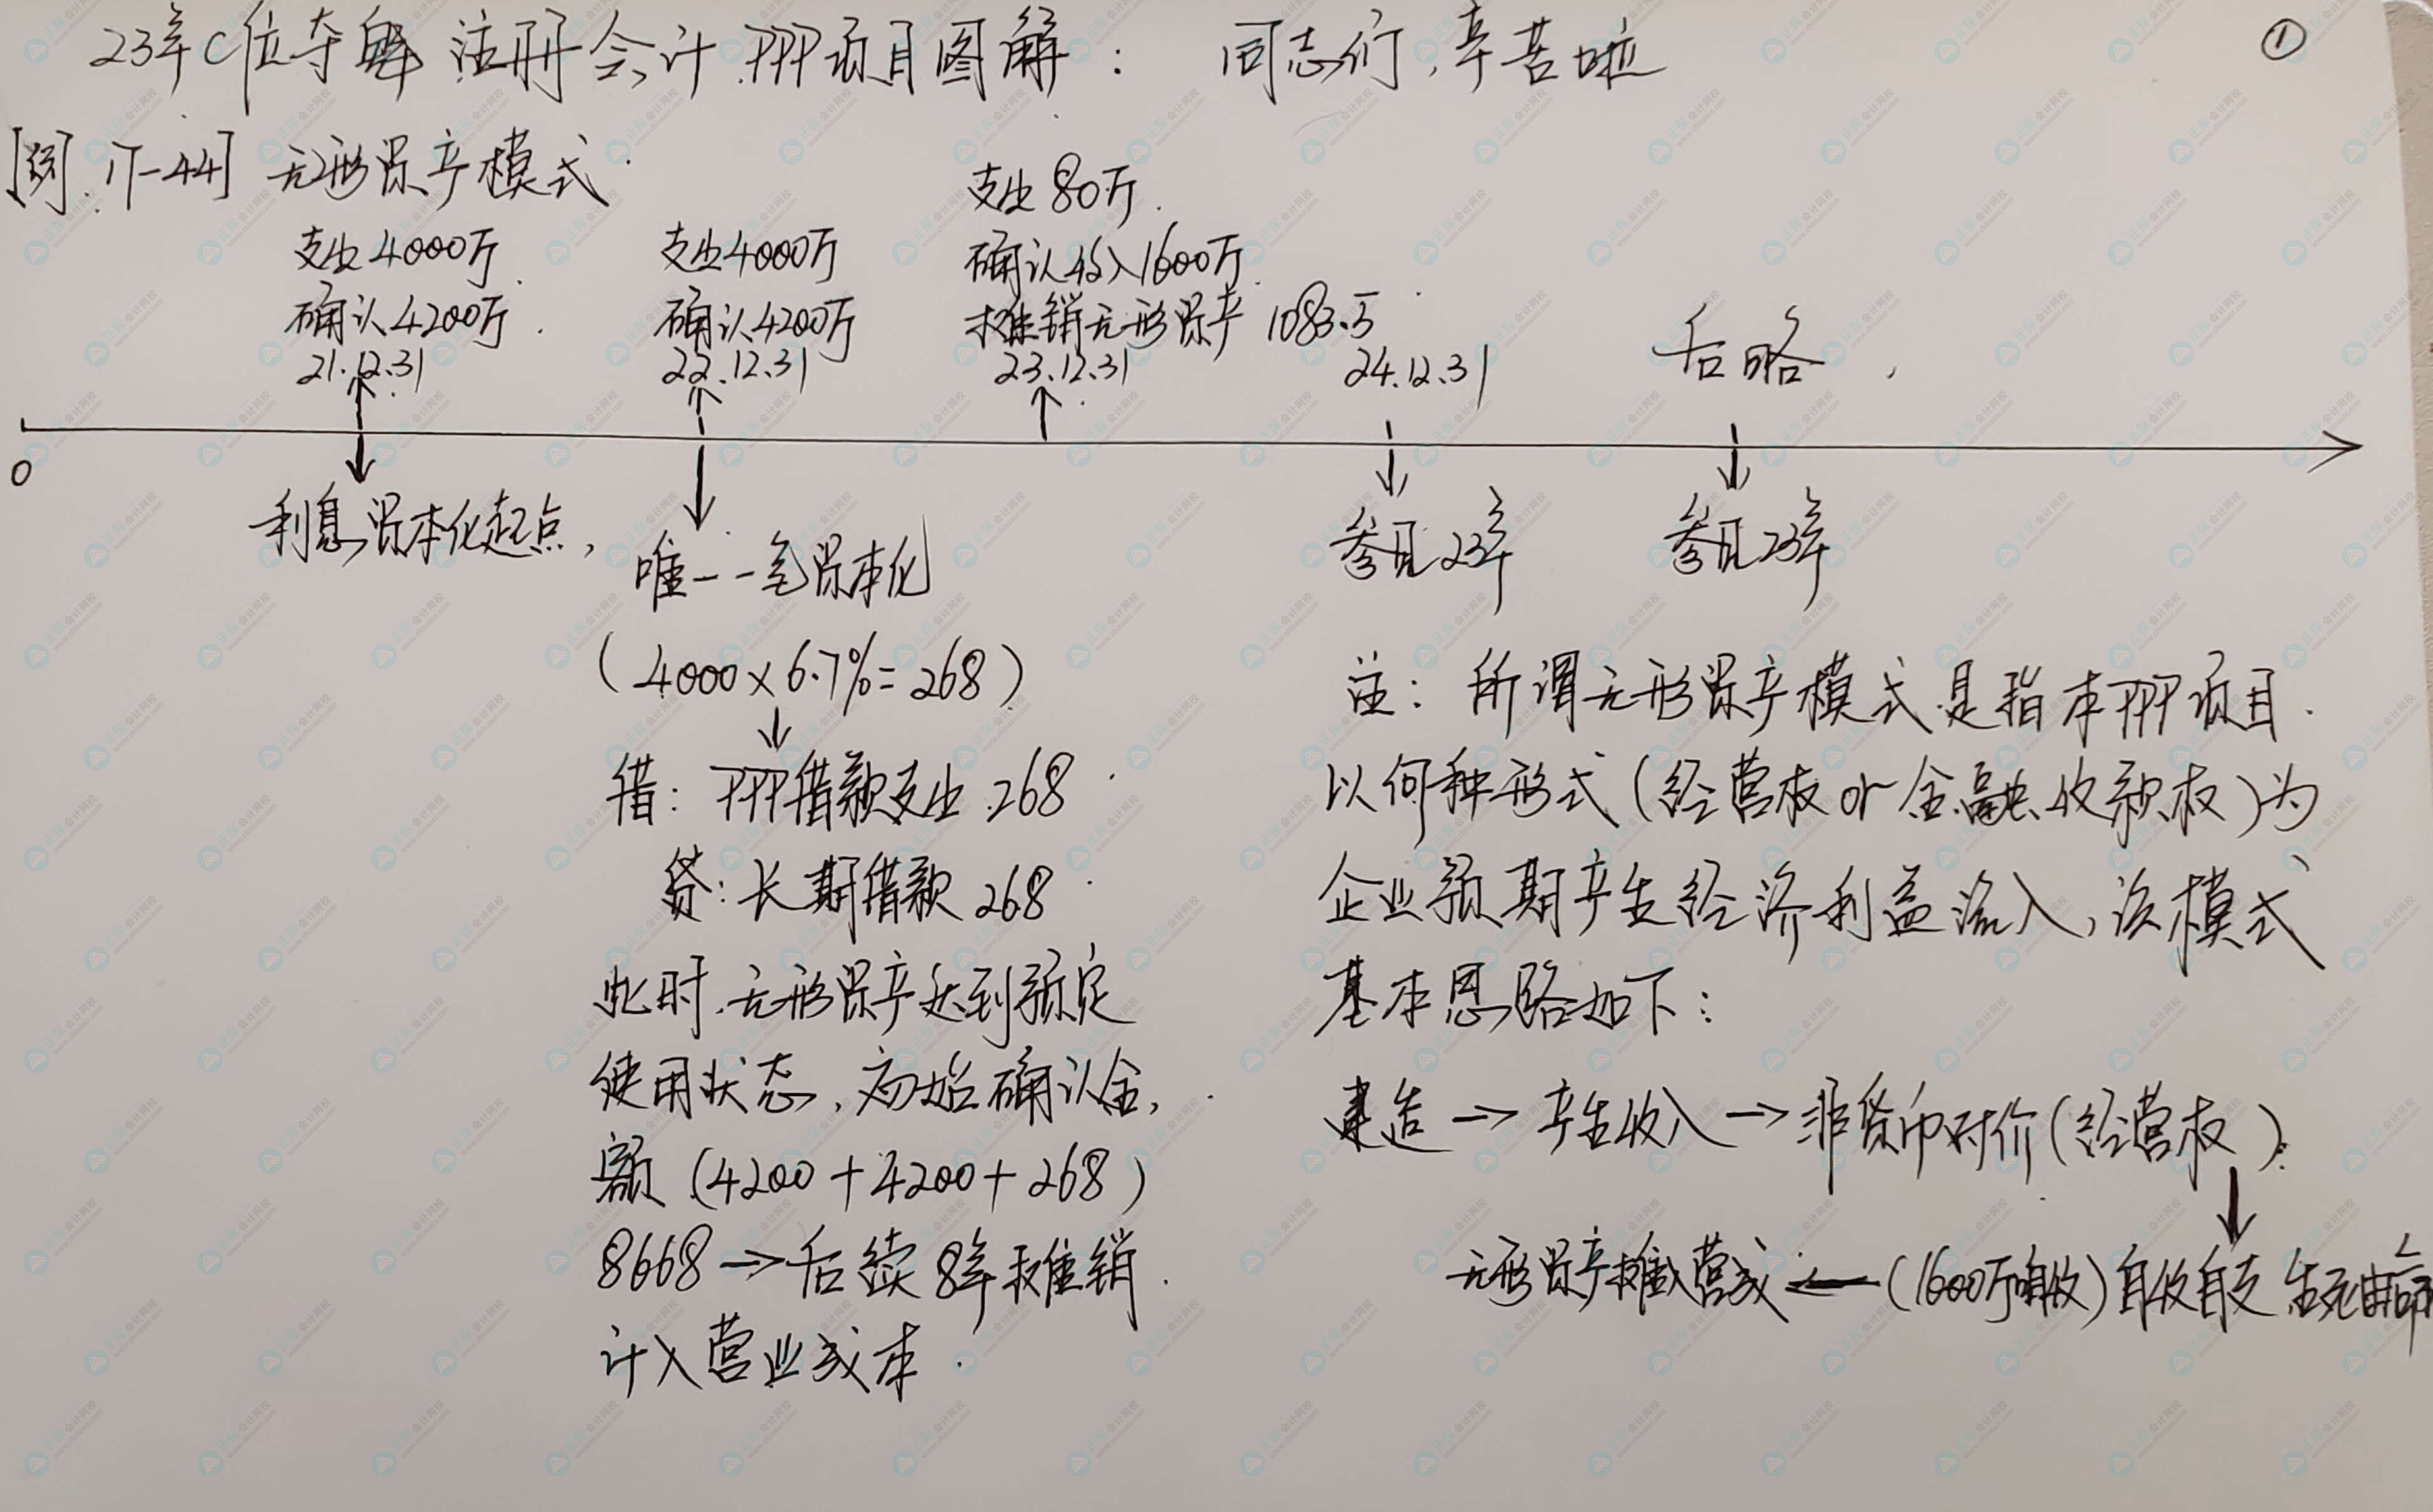 23年C位夺魁 注册会计 PPP项目图解： 同志们，辛苦啦 ①
[例.17-44] 无形资产模式
支出4000万
确认4200万
21.12.31
支出4000万
确认4200万
22.12.31
支出80万
确认收入1600万
摊销无形资产 1083.5
23.12.31
24.12.31
后略
0
利息资本化起点，
唯一一笔资本化
(4000×6.7%=268)
借：PPP借款支出 268
贷：长期借款 268
此时，无形资产达到预定
使用状态，初始确认金
额 (4200+4200+268)
8668→后续8年摊销
计入营业成本
参见23年
参见23年
注：所谓无形资产模式是指本PPP项目
以何种形式(经营权or金融收款权)为
企业预期产生经济利益流入，该模式
基本思路如下：
建造→产生收入→非货币对价(经营权)
↓
无形资产摊入营成←(1600万自收)自收自支 生死由命
正保会计网校
www.chinaacc.com